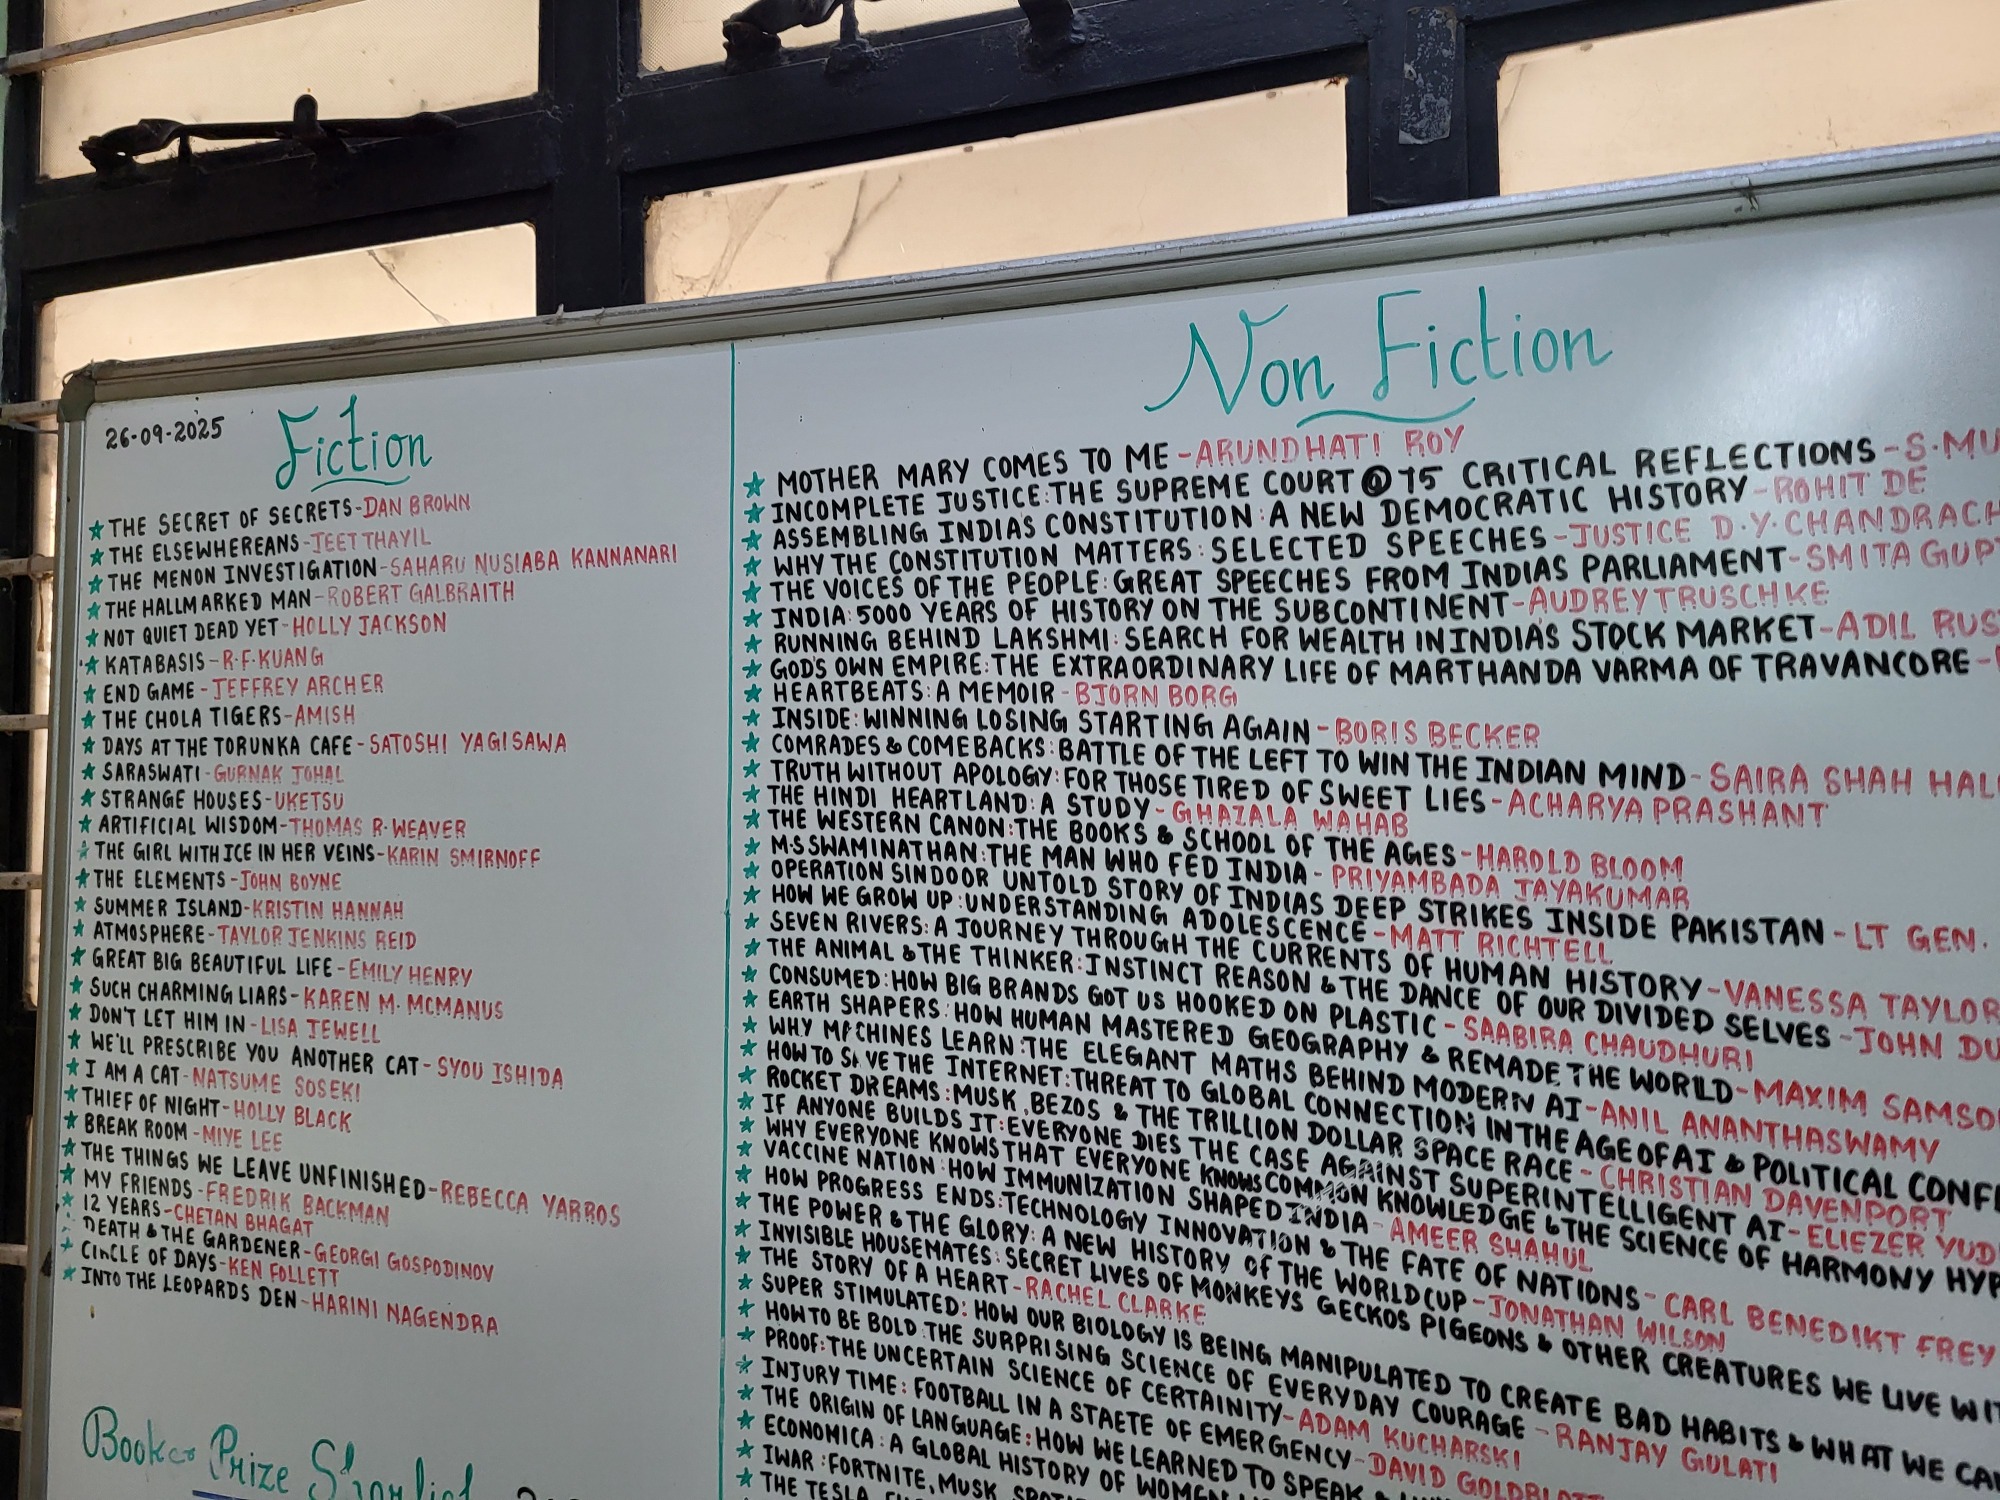 26-09-2025
Fiction
★ THE SECRET OF SECRETS-DAN BROWN
★ THE ELSEWHEREANS-JEET THAYIL
★ THE MENON INVESTIGATION-SAHARU NUSIABA KANNANARI
★ THE HALLMARKED MAN-ROBERT GALBRAITH
★ NOT QUIET DEAD YET-HOLLY JACKSON
★ KATABASIS-R.F.KUANG
★ END GAME-JEFFREY ARCHER
★ THE CHOLA TIGERS-AMISH
★ DAYS AT THE TORUNKA CAFE-SATOSHI YAGISAWA
★ SARASWATI-GURNAK JOHAL
★ STRANGE HOUSES-UKETSU
★ ARTIFICIAL WISDOM-THOMAS R.WEAVER
★ THE GIRL WITH ICE IN HER VEINS-KARIN SMIRNOFF
★ THE ELEMENTS-JOHN BOYNE
★ SUMMER ISLAND-KRISTIN HANNAH
★ ATMOSPHERE-TAYLOR JENKINS REID
★ GREAT BIG BEAUTIFUL LIFE-EMILY HENRY
★ SUCH CHARMING LIARS-KAREN M. MCMANUS
★ DON'T LET HIM IN-LISA JEWELL
★ WE'LL PRESCRIBE YOU ANOTHER CAT-SYOU ISHIDA
★ I AM A CAT-NATSUME SOSEKI
★ THIEF OF NIGHT-HOLLY BLACK
★ BREAK ROOM-MIYE LEE
★ THE THINGS WE LEAVE UNFINISHED-REBECCA YARROS
★ MY FRIENDS-FREDRIK BACKMAN
★ 12 YEARS-CHETAN BHAGAT
★ DEATH & THE GARDENER-GEORGI GOSPODINOV
★ CIRCLE OF DAYS-KEN FOLLETT
★ INTO THE LEOPARDS DEN-HARINI NAGENDRA
Booker Prize Shortlist
Non Fiction
★ MOTHER MARY COMES TO ME-ARUNDHATI ROY
★ INCOMPLETE JUSTICE:THE SUPREME COURT @ 75 CRITICAL REFLECTIONS-S.MU
★ ASSEMBLING INDIAS CONSTITUTION:A NEW DEMOCRATIC HISTORY-ROHIT DE
★ WHY THE CONSTITUTION MATTERS:SELECTED SPEECHES-JUSTICE D.Y.CHANDRACH
★ THE VOICES OF THE PEOPLE:GREAT SPEECHES FROM INDIAS PARLIAMENT-SMITA GUPT
★ INDIA:5000 YEARS OF HISTORY ON THE SUBCONTINENT-AUDREY TRUSCHKE
★ RUNNING BEHIND LAKSHMI:SEARCH FOR WEALTH IN INDIA'S STOCK MARKET-ADIL RUS
★ GOD'S OWN EMPIRE:THE EXTRAORDINARY LIFE OF MARTHANDA VARMA OF TRAVANCORE-
★ HEARTBEATS:A MEMOIR-BJORN BORG
★ INSIDE:WINNING LOSING STARTING AGAIN-BORIS BECKER
★ COMRADES & COMEBACKS:BATTLE OF THE LEFT TO WIN THE INDIAN MIND-SAIRA SHAH HAL
★ TRUTH WITHOUT APOLOGY:FOR THOSE TIRED OF SWEET LIES-ACHARYA PRASHANT
★ THE HINDI HEARTLAND:A STUDY-GHAZALA WAHAB
★ THE WESTERN CANON:THE BOOKS & SCHOOL OF THE AGES-HAROLD BLOOM
★ M.S SWAMINATHAN:THE MAN WHO FED INDIA-PRIYAMBADA JAYAKUMAR
★ OPERATION SINDOOR UNTOLD STORY OF INDIAS DEEP STRIKES INSIDE PAKISTAN-LT GEN.
★ HOW WE GROW UP:UNDERSTANDING ADOLESCENCE-MATT RICHTELL
★ SEVEN RIVERS:A JOURNEY THROUGH THE CURRENTS OF HUMAN HISTORY-VANESSA TAYLOR
★ THE ANIMAL & THE THINKER:INSTINCT REASON & THE DANCE OF OUR DIVIDED SELVES-JOHN DU
★ CONSUMED:HOW BIG BRANDS GOT US HOOKED ON PLASTIC-SAABIRA CHAUDHURI
★ EARTH SHAPERS:HOW HUMAN MASTERED GEOGRAPHY & REMADE THE WORLD-MAXIM SAMSO
★ WHY MACHINES LEARN:THE ELEGANT MATHS BEHIND MODERN AI-ANIL ANANTHASWAMY
★ HOW TO SAVE THE INTERNET:THREAT TO GLOBAL CONNECTION IN THE AGE OF AI & POLITICAL CONF
★ ROCKET DREAMS:MUSK,BEZOS & THE TRILLION DOLLAR SPACE RACE-CHRISTIAN DAVENPORT
★ IF ANYONE BUILDS IT:EVERYONE DIES THE CASE AGAINST SUPERINTELLIGENT AI-ELIEZER YUD
★ WHY EVERYONE KNOWS THAT EVERYONE KNOWS COMMON KNOWLEDGE & THE SCIENCE OF HARMONY HYP
★ VACCINE NATION:HOW IMMUNIZATION SHAPED INDIA-AMEER SHAHUL
★ HOW PROGRESS ENDS:TECHNOLOGY INNOVATION & THE FATE OF NATIONS-CARL BENEDIKT FREY
★ THE POWER & THE GLORY:A NEW HISTORY OF THE WORLD CUP-JONATHAN WILSON
★ INVISIBLE HOUSEMATES:SECRET LIVES OF MONKEYS GECKOS PIGEONS & OTHER CREATURES WE LIVE WIT
★ THE STORY OF A HEART-RACHEL CLARKE
★ SUPER STIMULATED:HOW OUR BIOLOGY IS BEING MANIPULATED TO CREATE BAD HABITS & WHAT WE CA
★ HOW TO BE BOLD:THE SURPRISING SCIENCE OF EVERYDAY COURAGE-RANJAY GULATI
★ PROOF:THE UNCERTAIN SCIENCE OF CERTAINITY-ADAM KUCHARSKI
★ INJURY TIME:FOOTBALL IN A STAETE OF EMERGENCY-DAVID GOLDBLATT
★ THE ORIGIN OF LANGUAGE:HOW WE LEARNED TO SPEAK &
★ ECONOMICA:A GLOBAL HISTORY OF WOMEN
★ IWAR:FORTNITE,MUSK
★ THE TESLA